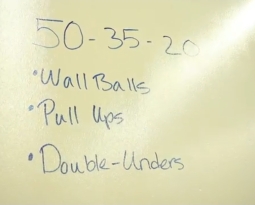 50-35-20
•Wall Balls
•Pull Ups
•Double-Unders